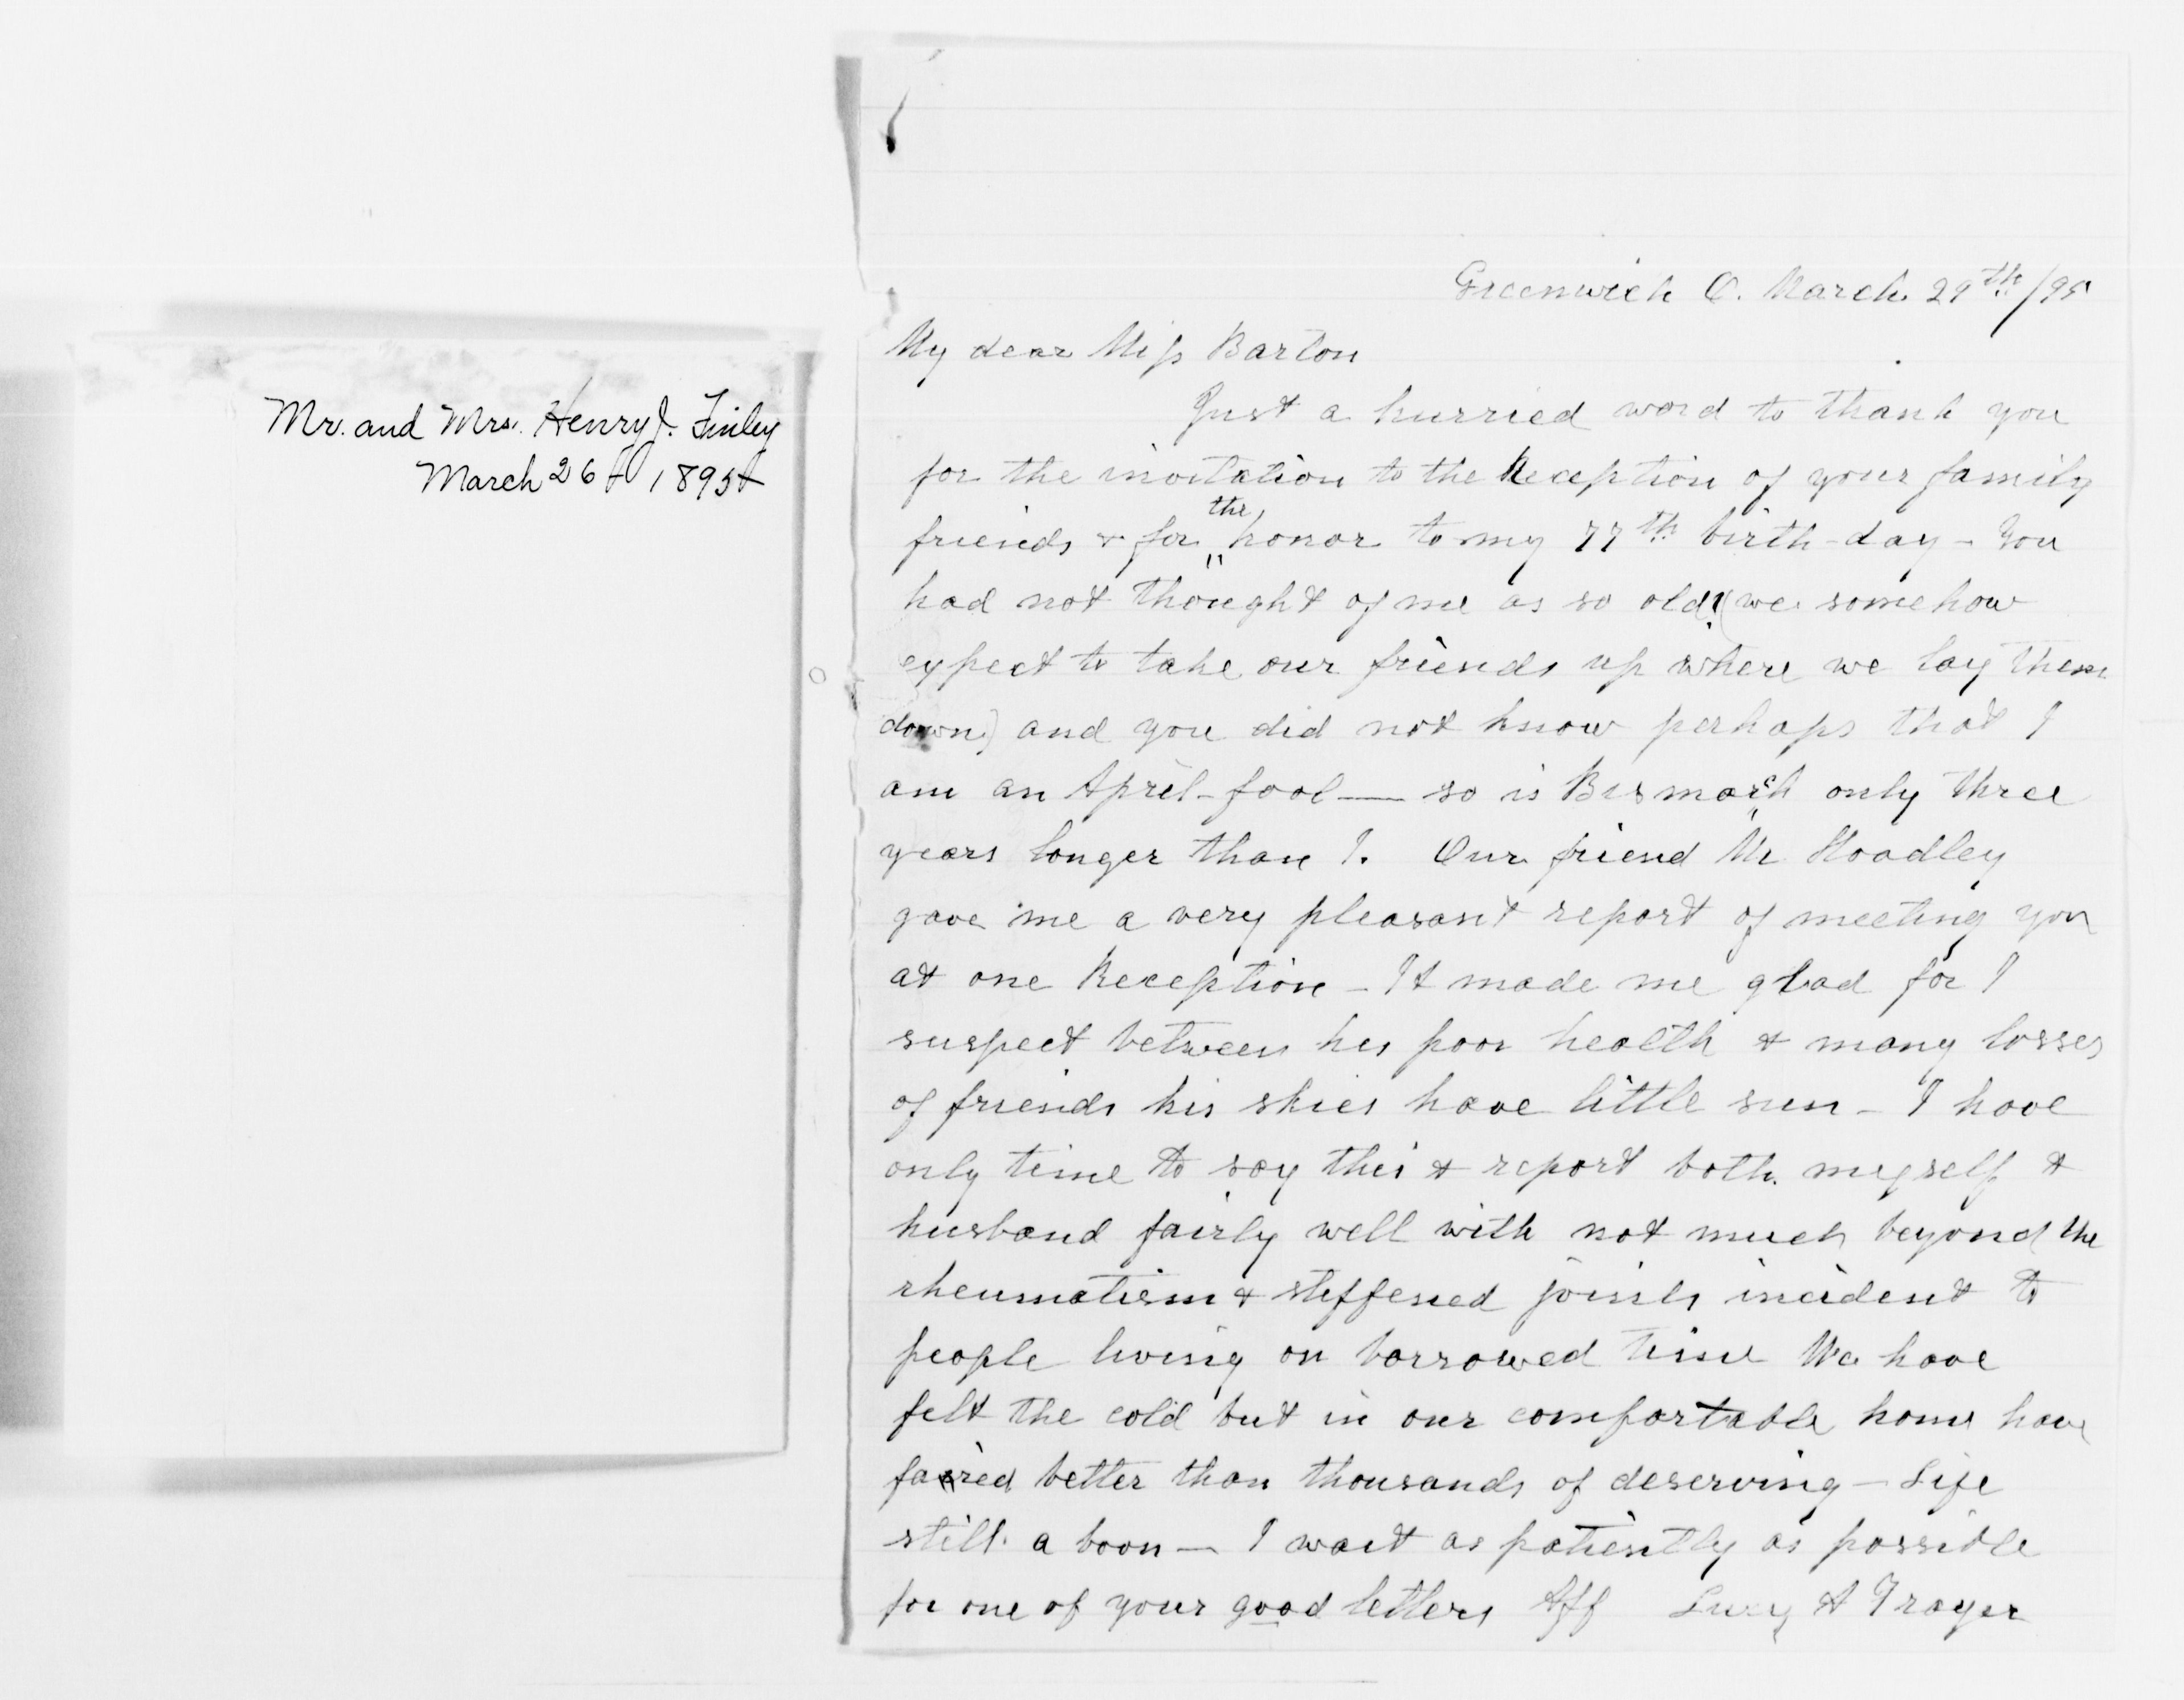 Mr. and Mrs. Henry J. Finley
March 26th 1895
Greenwich O. March 29th/95
My dear Miss Barton
Just a hurried word to thank you
for the invitation to the Reception of your family
friends & for the honor to my 77th birth-day - You
had not thought of me as so old! (we somehow
expect to take our friends up where we lay them
down) and you did not know perhaps that I
am an April-fool — so is Bismarck only three
years longer than I. Our friend Mr Hoadley
gave me a very pleasant report of meeting you
at one Reception - It made me glad for I
suspect between his poor health & many losses
of friends his skies have little sun - I have
only time to say this & report both myself &
husband fairly well with not much beyond the
rheumatism & stiffened joints incident to
people living on borrowed time We have
felt the cold but in our comfortable home have
faired better than thousands of deserving - Life
still a boon — I wait as patiently as possible
for one of your good letters Aff Lucy A